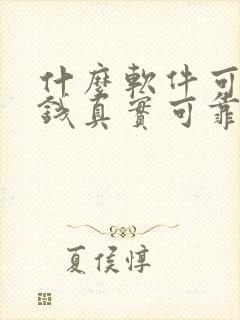 什麼軟件可
錢真實可靠
夏侯惇